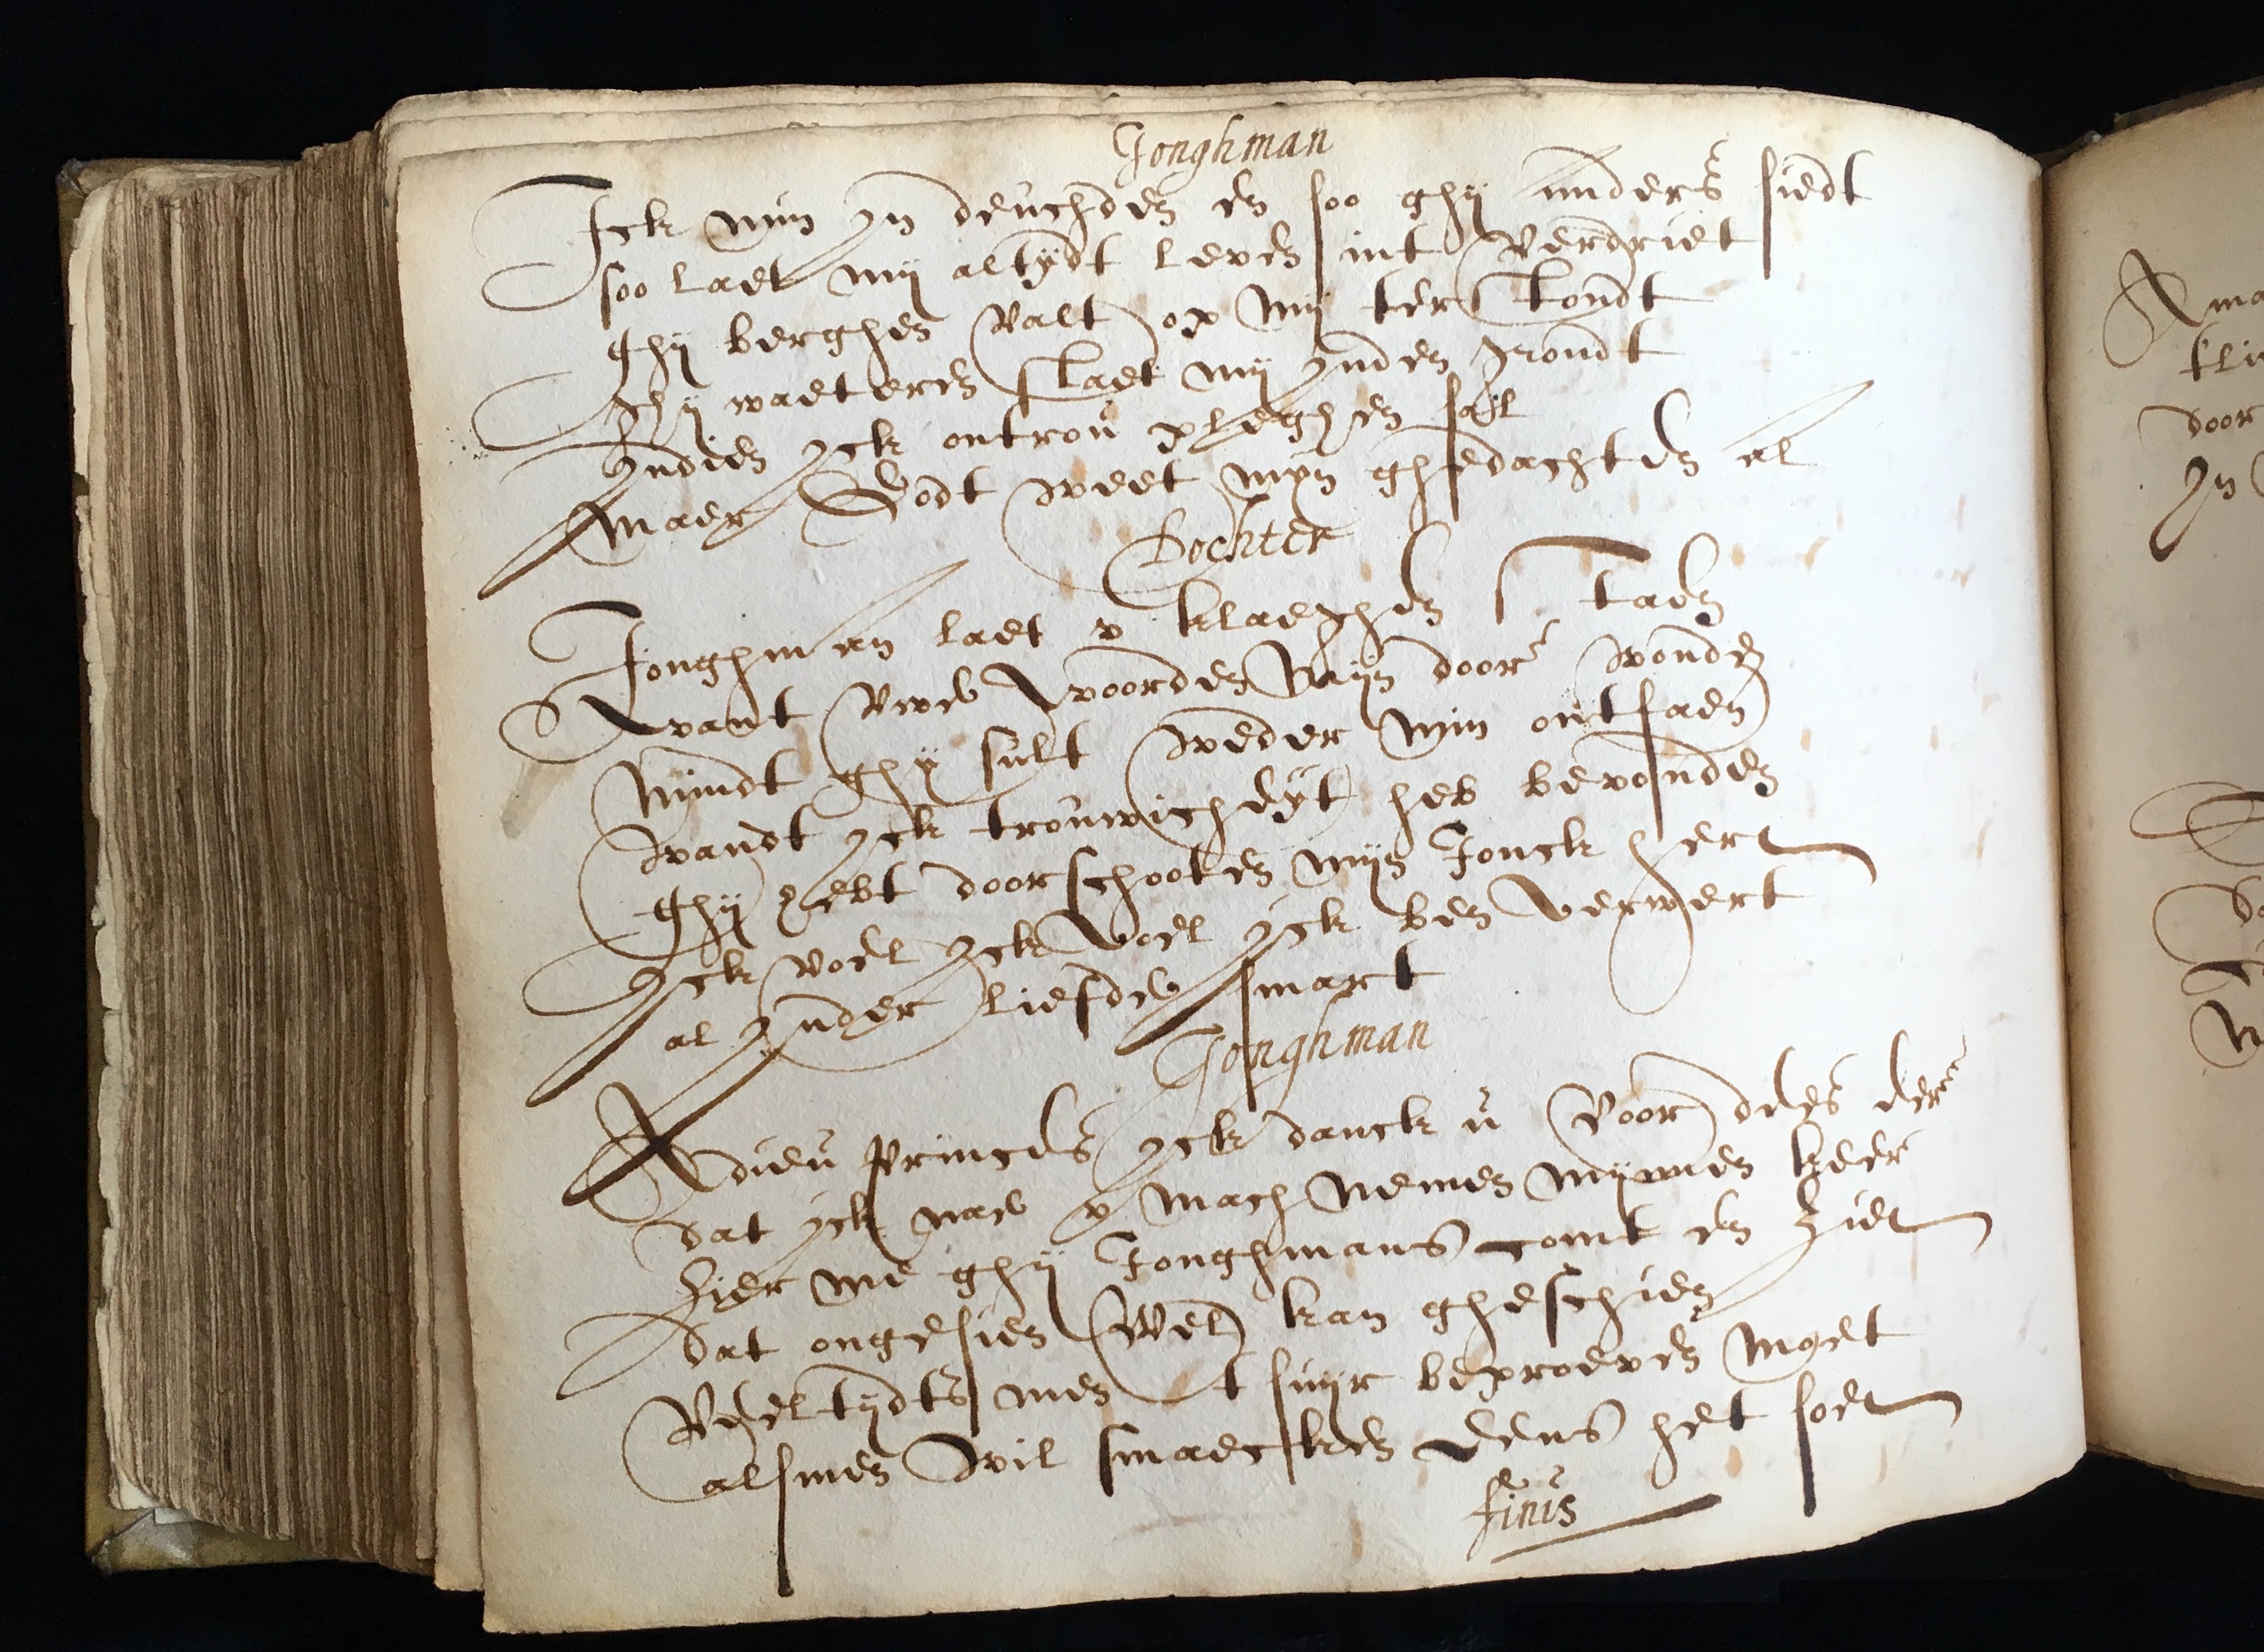 Jonghman
Jck min yn deuchden en soo ghij anders siedt
soo laet mij altydt leven int verdriet
ghij berghen valt op mij terstondt
ghij waeteren slaet mij ynden grondt
yndien yck ontrou pleghen sal
maer Godt weet myn ghedachten al
Dochter
Jonghman laet v klaeghen staen
want vwe woorden mijn door wonden
mijndt ghij sult weder min ontfaen
wandt yck trouwicheijt heb bevonden
ghij hebt doorschooten mijn Jonck hert
yck voel yck voel yck ben verwert
al ynder liefde smart
Jonghman
Adieu princes yck danck u voor dees eer
dat yck nae v mach nemen mijnnen keer
hier me ghij Jonghmans comt en ziet
dat ongesien wel kan gheschien
veeltydts men t suyr beproeven moet
alsmen wil smaecken eens het soet
finis
Ama
door